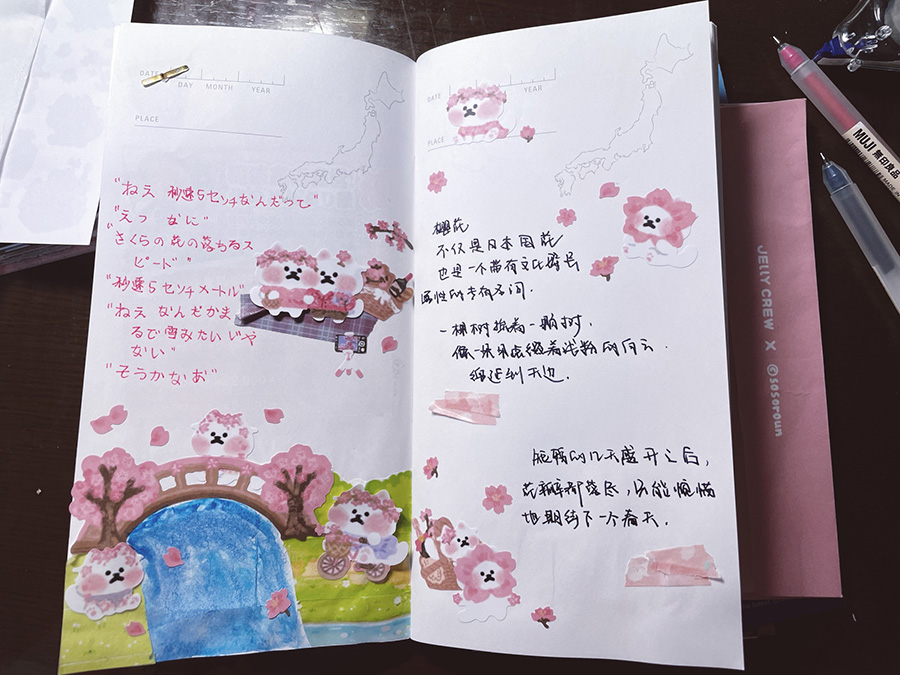 DATE
DAY MONTH YEAR
PLACE
"ねえ 秒速5センチなんだって"
"えっ なに"
"さくらの花の落ちるス
ピード"
"秒速5センチメートル"
"ねえ なんだかま
るで雪みたいじゃ
ない"
"そうかなあ"
DATE
YEAR
PLACE
櫻花
不仅是日本国花
也是一个带有文化符号
属性的专有名词.
一棵树挨着一颗树,
像一朵朵透着淡粉的白云
绵延到天边.
短暂的几天盛开之后,
花瓣都落尽,只能惋惜
地期待下一个春天.
MUJI 無印良品
JELLY CREW × ©sosoroun